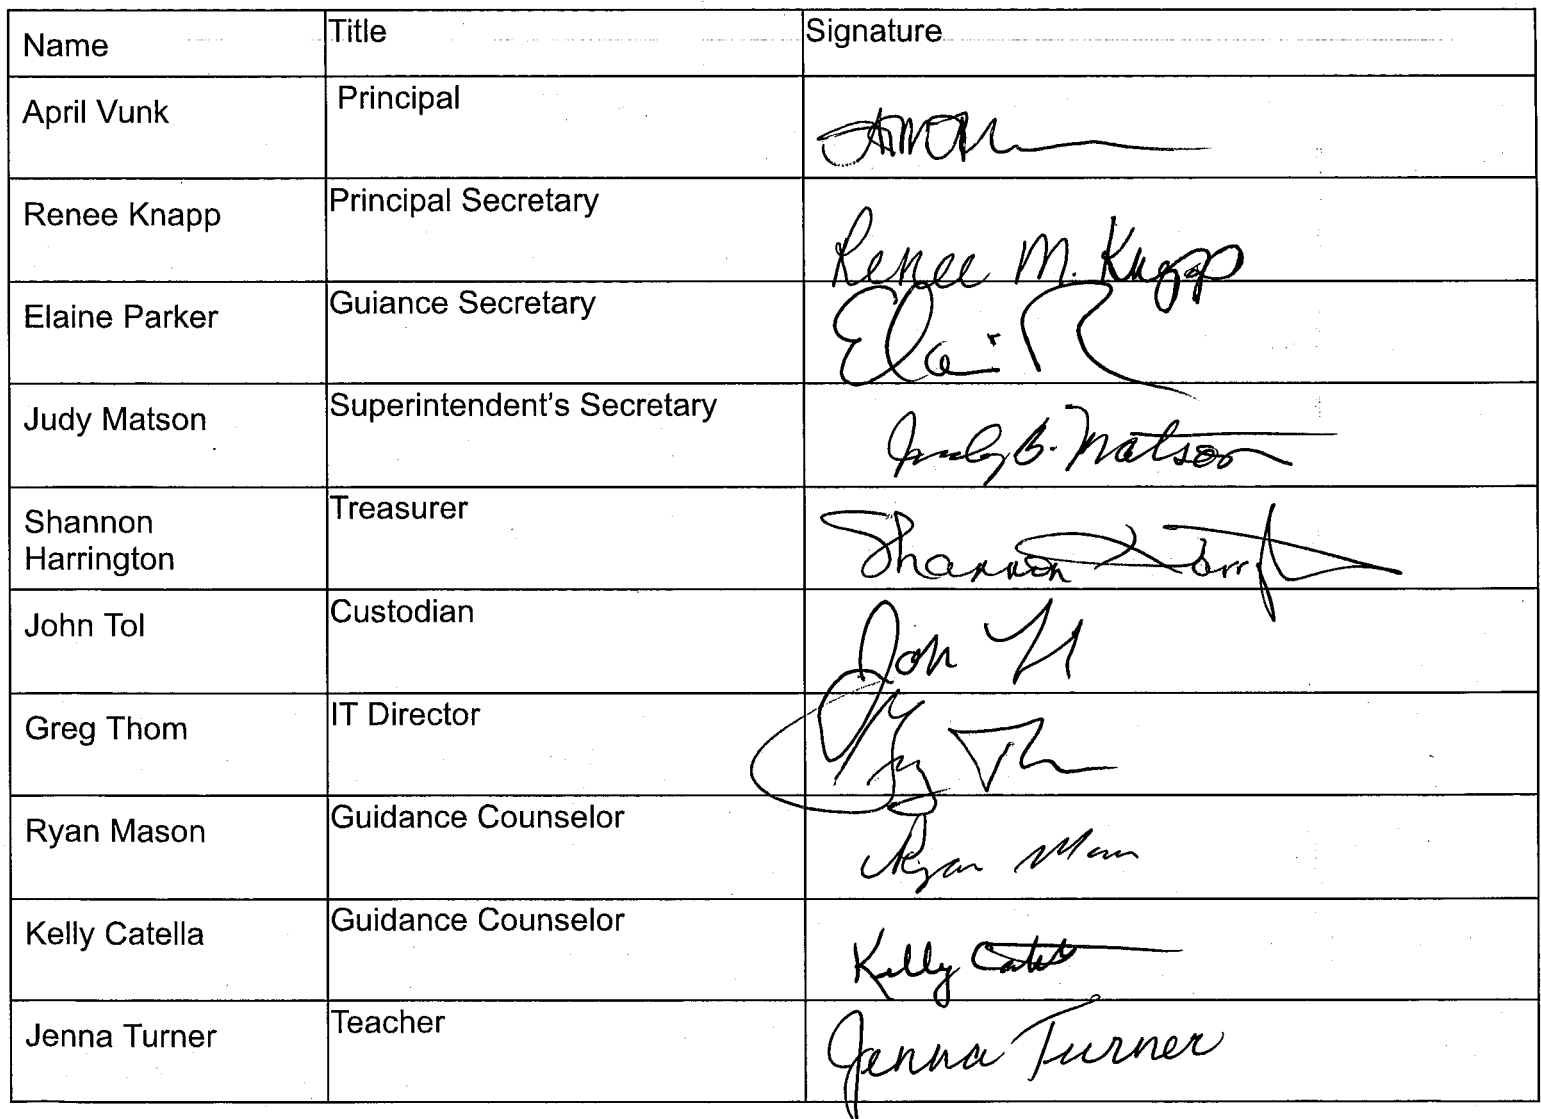 Name Title Signature
April Vunk Principal
Renee Knapp Principal Secretary Renee M. Knapp
Elaine Parker Guiance Secretary
Judy Matson Superintendent's Secretary Judy B. Matson
Shannon
Harrington Treasurer Shannon
John Tol Custodian
Greg Thom IT Director
Ryan Mason Guidance Counselor Ryan
Kelly Catella Guidance Counselor Kelly
Jenna Turner Teacher Jenna Turner